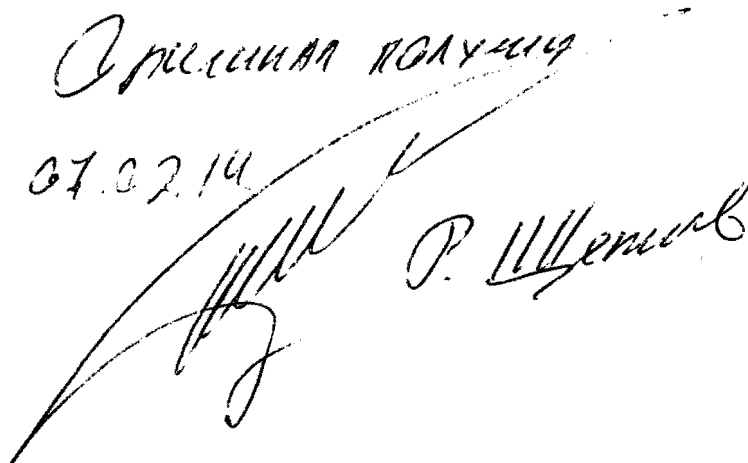 Оригинал получил
07.02.14
Р. Щепилов